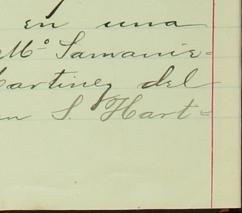 en una
Mº Samanie=
artinez del
n S. Hart=